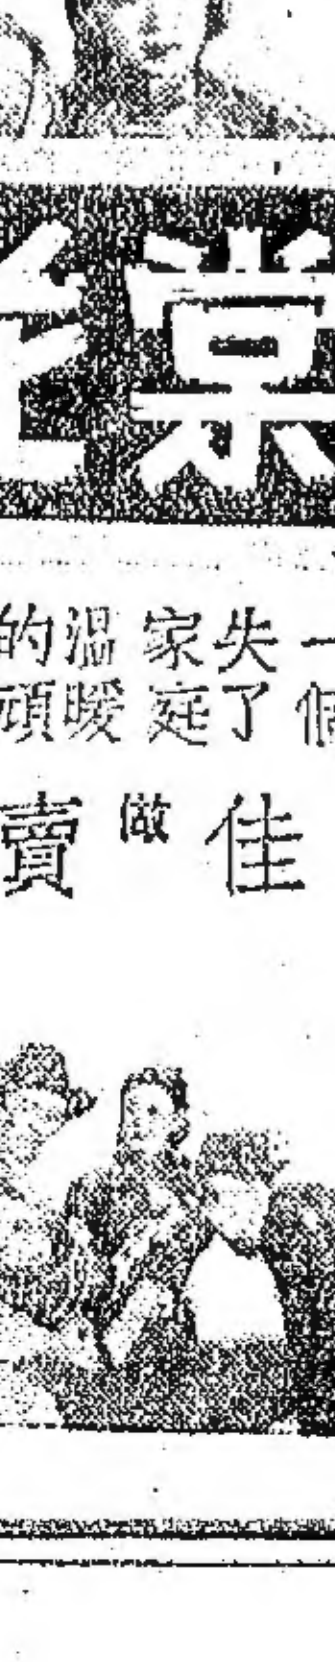 棠
一個
失了
家庭
溫暖
的頑
佳做賣